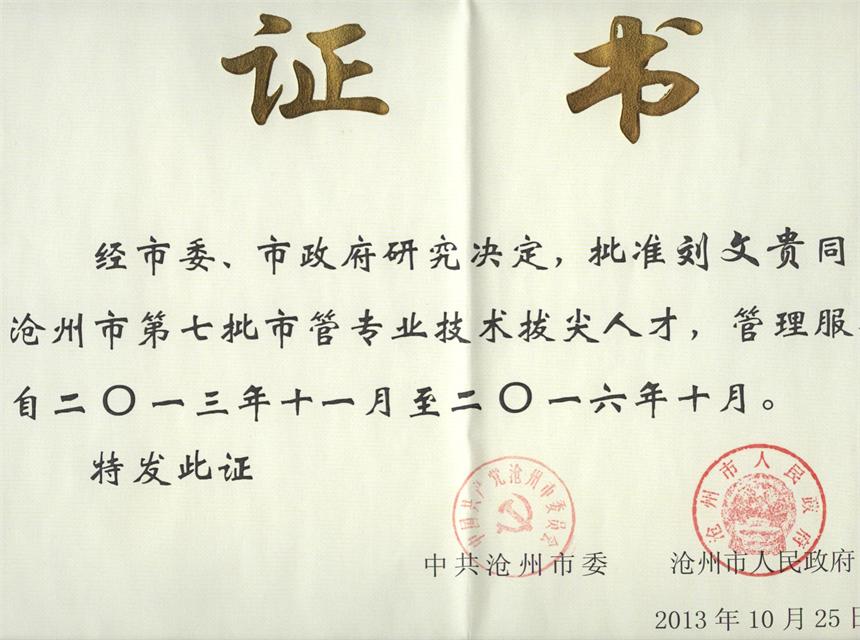 证书
经市委、市政府研究决定，批准刘文贵同
沧州市第七批市管专业技术拔尖人才，管理服
自二〇一三年十一月至二〇一六年十月。
特发此证
中国共产党沧州市委员会
沧州市人民政府
中共沧州市委 沧州市人民政府
2013年10月25日